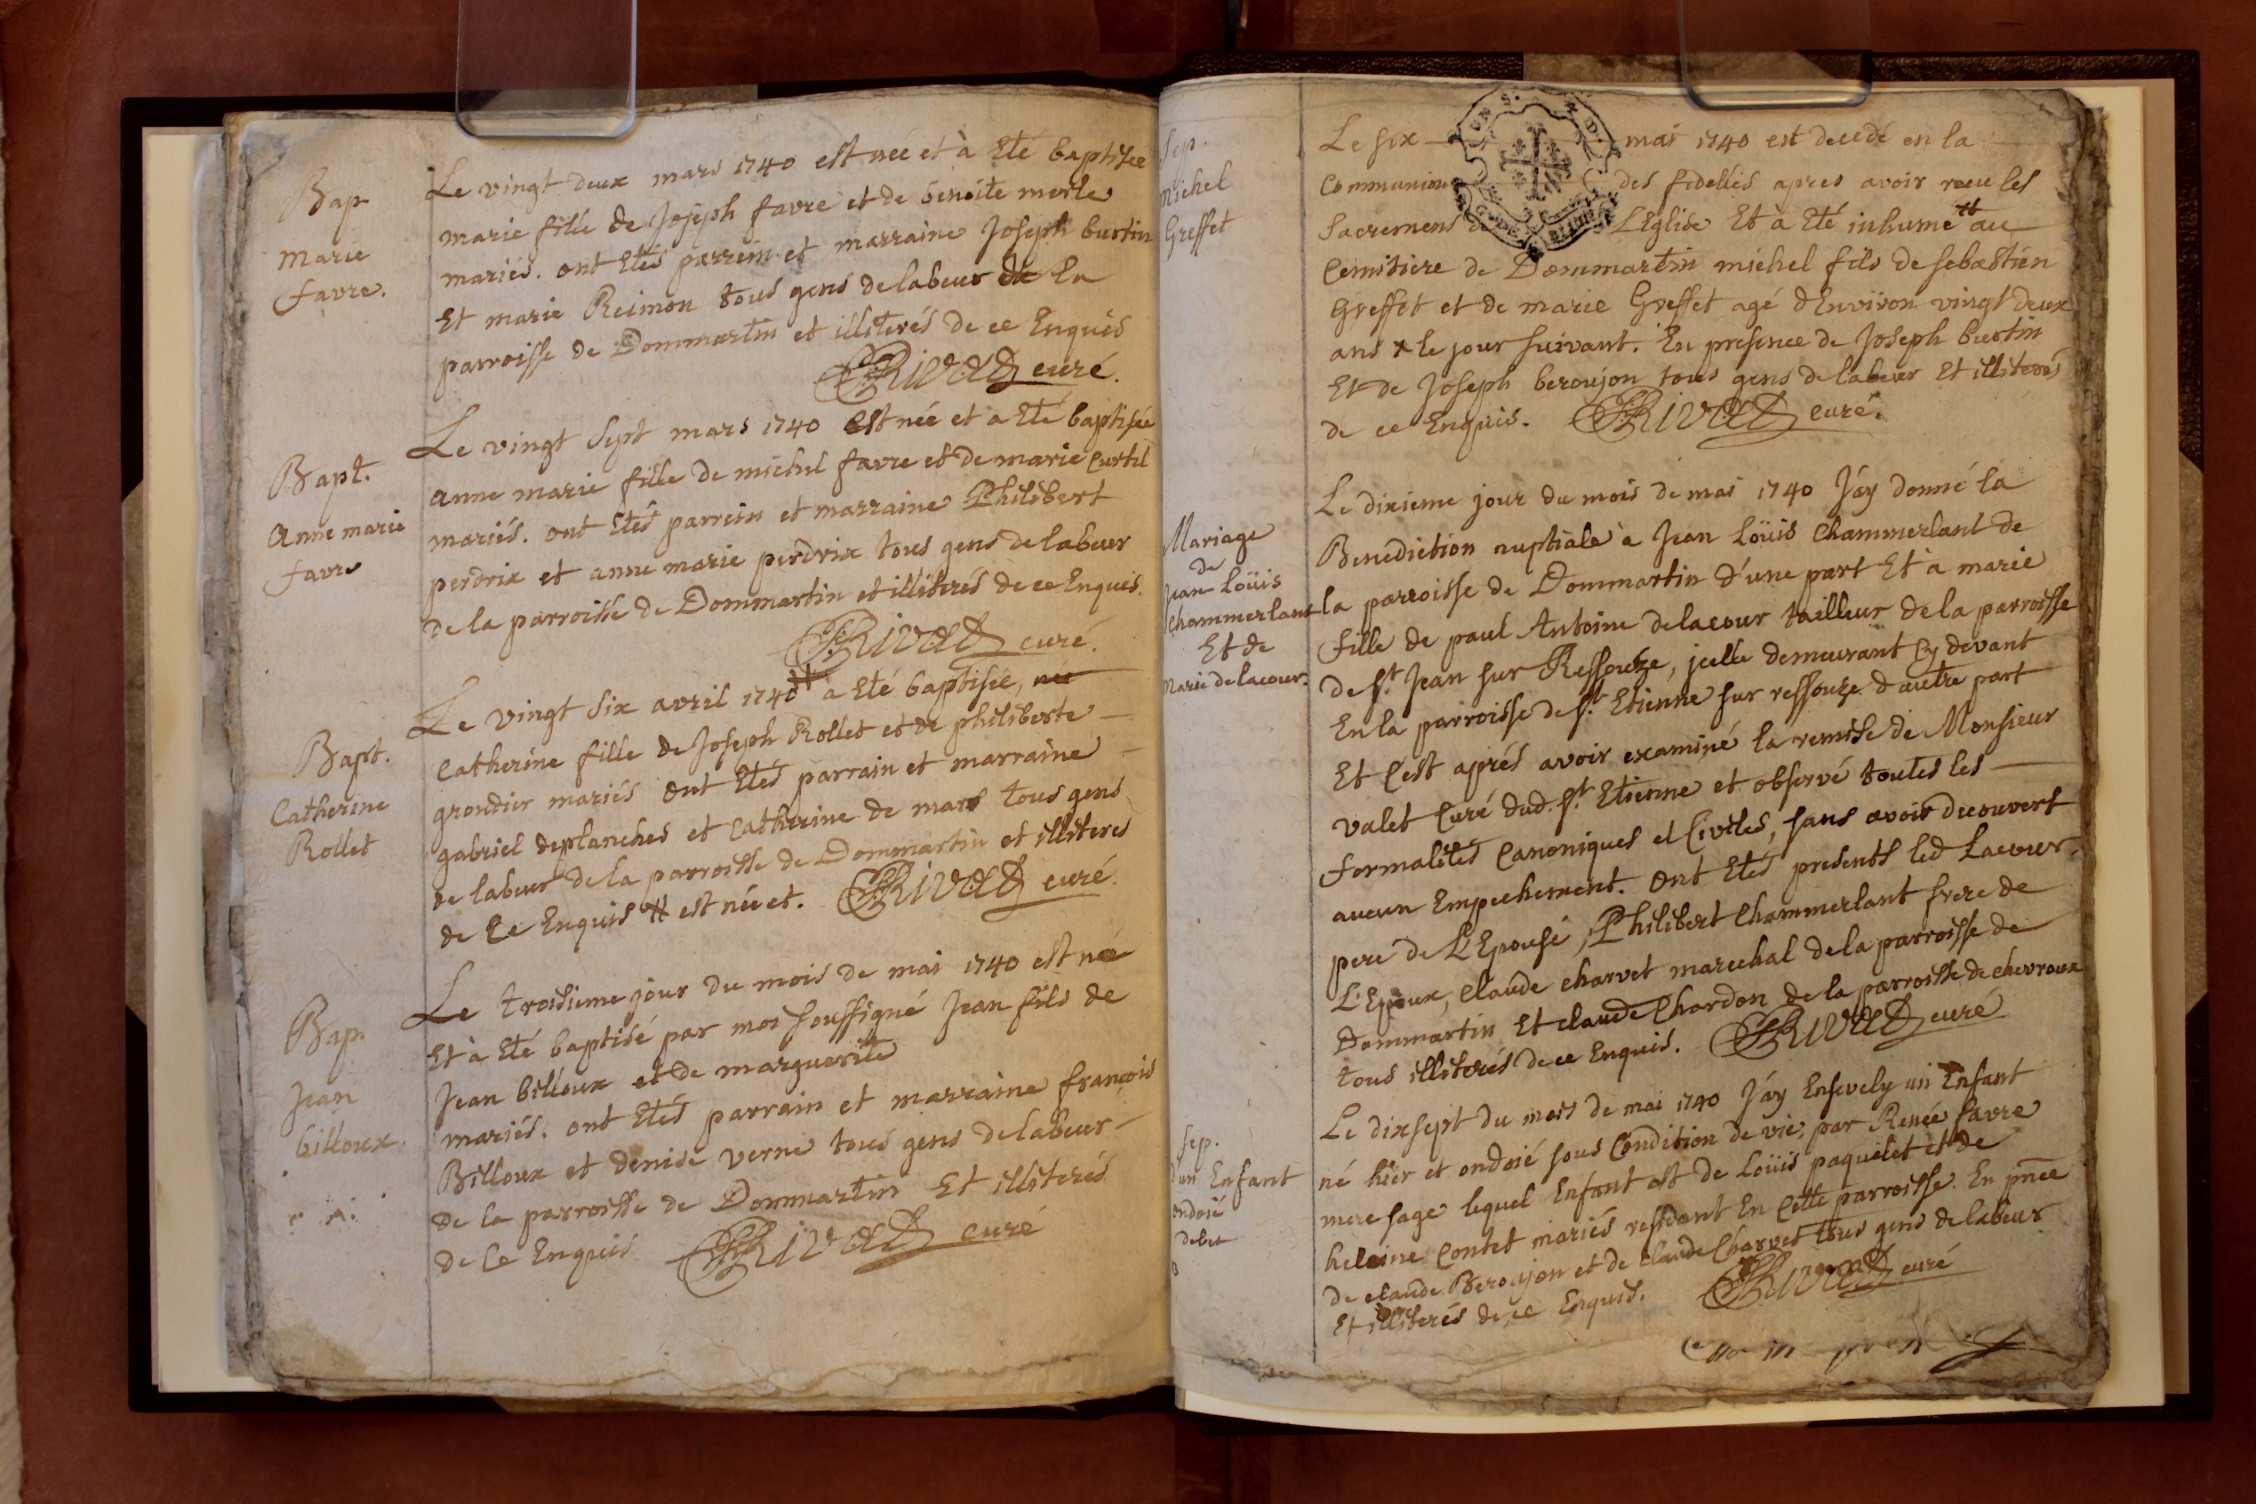 Bap
Marie
favre.
Le vingt deux mars 1740 est née et à Eté baptisée
marie fille de Joseph favre et de benoite merle
mariés. ont Etés parrein et marraine Joseph burtin
Et marie Reimon tous gens de labeur de la
parroisse de Dommartin et illiterés de ce Enquis
Rivat curé.
Bapt.
Anne marie
favre
Le vingt sept mars 1740 Est née et a Eté baptisée
anne marie fille de michel favre et de marie Curtil
mariés. ont Etés parrein et marraine Philibert
perdrix et anne marie perdrix tous gens de labeur
de la parroisse de Dommartin et illiterés de ce Enquis.
Rivat curé.
Bapt.
Catherine
Rollet
Le vingt six avril 1740 # à Eté baptisée, née
Catherine fille de Joseph Rollet et de philiberte
grondier mariés ont Etés parrain et marraine
gabriel deplanches et Catherine de mars tous gens
de labeur de la parroisse de Dommartin et illiteres
de Ce Enquis # est née et. Rivat curé.
Bap.
Jean
billoux.
Le troisieme jour du mois de mai 1740 est né
Et à Eté baptisé par moi soussigné Jean fils de
Jean billoux et de marguerite
mariés. ont Etés parrain et marraine françois
Billoux et denise verne tous gens de labeur
de la parroisse de Dommartin Et illiterés
de Ce Enquis Rivat curé
Sep.
michel
Greffet
Le six mai 1740 est decedé en la
Communion des fidelles apres avoir receu les
Sacremens de L'Eglise Et à Eté inhumé # au
Cemitiere de Dommartin michel fils de sebastien
Greffet et de marie Greffet agé d'Environ vingt deux
ans # le jour suivant. En presence de Joseph burtin
Et de Joseph beroujon tous gens de labeur Et illiterés
de ce Enquis. Rivat curé.
Mariage
de
Jean Loüis
Chammerlant
Et de
Marie delacour.
Le dixieme jour du mois de mai 1740 J'áy donné la
Benediction nuptiale à Jean Loüis Chammerlant de
la parroisse de Dommartin d'une part Et à marie
fille de paul Antoine delacour tailleur de la parroisse
de St. Jean sur Ressouze, jcelle demeurant Cy devant
En la parroisse de St. Etienne sur ressouze d'autre part
Et C'est aprés avoir examiné la remise de Monsieur
valet Curé dud. St. Etienne et observé toutes les
formalités Canoniques et Civiles, sans avoir decouvert
aucun Empechement. Ont Etés presents led Lacour
pere de L'Epouse, Philibert Chammerlant frere de
L'Epoux, Claude Charvet marechal de la parroisse de
Dommartin Et claude Chardon de la parroisse de chevroux
tous illiterés de ce Enquis. Rivat curé
Sep.
d'un Enfant
ondoié
Le dixsept du mois de mai 1740 J'áy Ensevely un Enfant
né hïer et ondoié sous Condition de vie, par Renée favre
mere sage lequel Enfant est de Loüis paquelet et de
heleine Contet mariés residant En Cette parroisse. En pñce
de claude Beroujon et de claude Charvet tous gens de labeur
Et illiterés de ce Enquis. Rivat curé